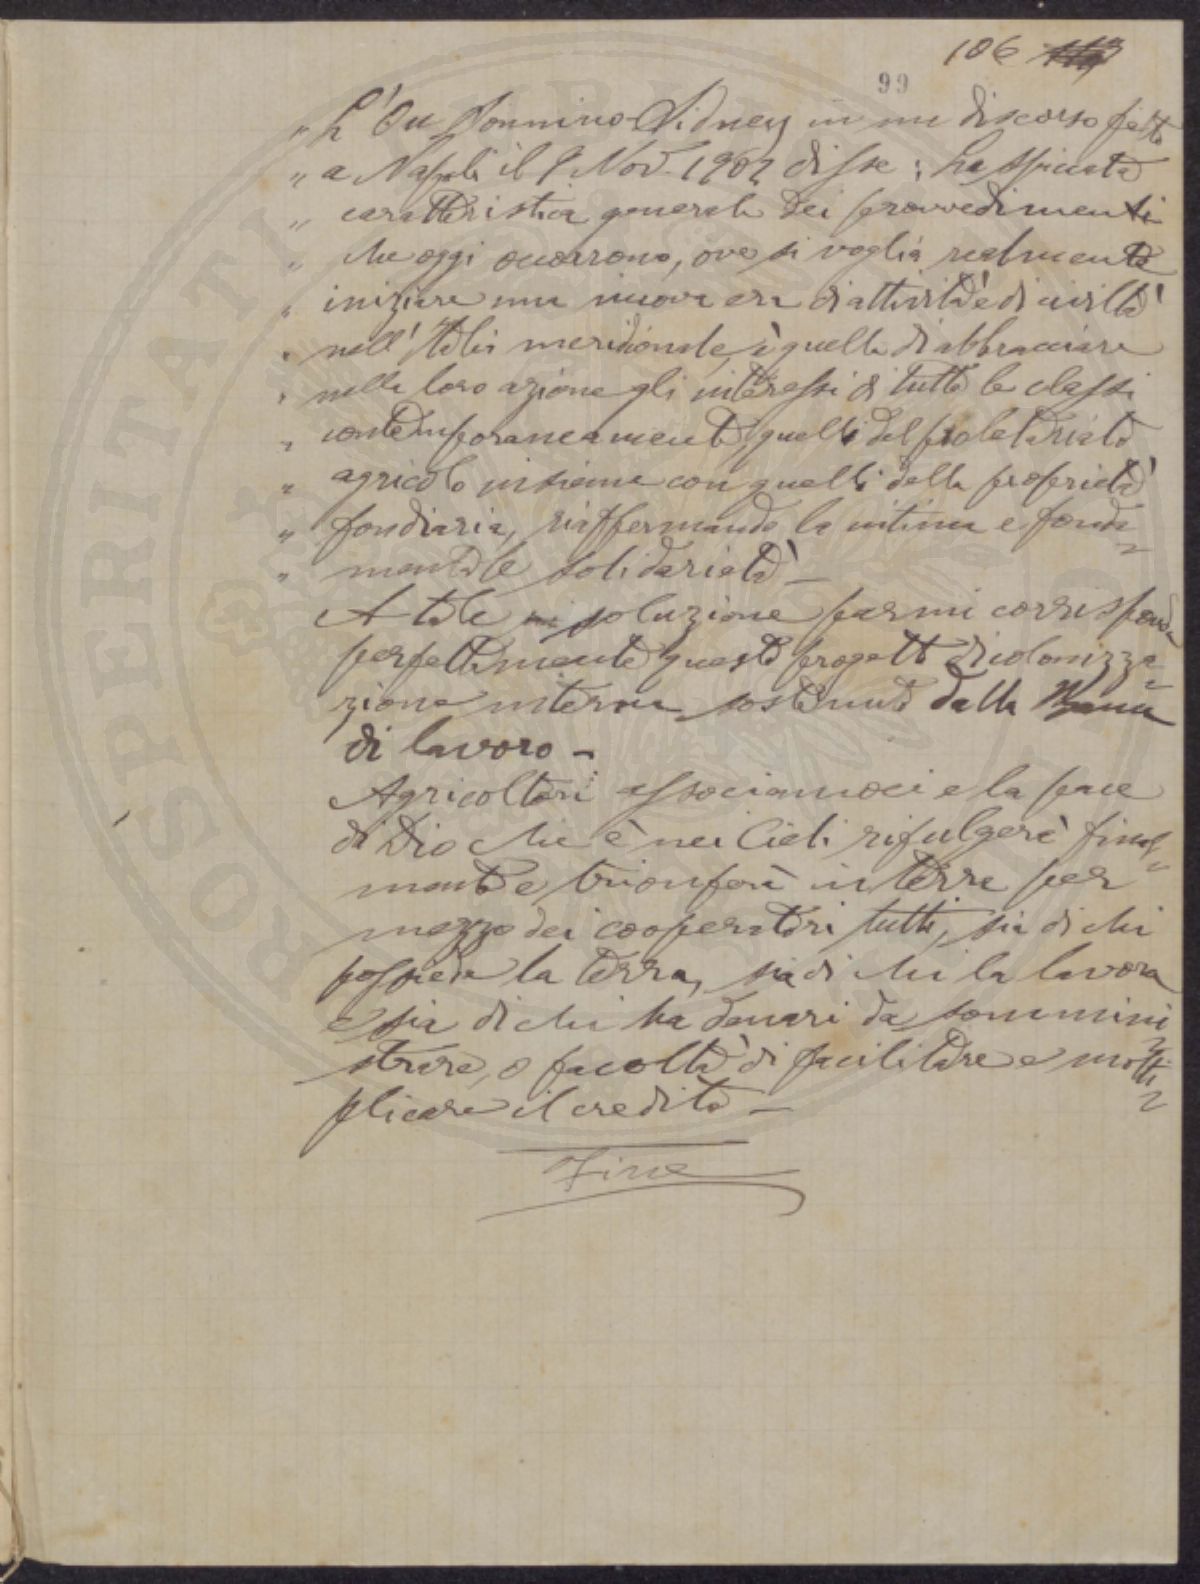 106 113
99
„ L'On Sonnino Sidney in un discorso fatto
„ a Napoli il 9 Nov. 1902 disse: La spiccata
„ caratteristica generale dei provvedimenti
„ che oggi occorrono, ove si voglia realmente
„ iniziare una nuova era di attività e di civiltà
„ nell'Italia meridionale, è quella di abbracciare
„ nella loro azione gli interessi di tutte le classi
„ contemporaneamente, quelli del proletariato
„ agricolo insieme con quelli della proprietà
„ fondiaria, riaffermando la intima e fonda=
„ mentale solidarietà —
A tale soluzione parmi corrisponda
perfettamente questo progetto di colonizza=
zione interna sostenuto dalla Banca
di lavoro —
Agricoltori associamoci e la pace
di Dio che è nei Cieli rifulgerà final=
mente e trionferà in terra per
mezzo dei cooperatori tutti, sia di chi
possiede la terra, sia di chi la lavora
e sia di chi ha denari da sommini=
strare, o facoltà di facilitare e molti=
plicare il credito —
Fine
SOSPERITATI